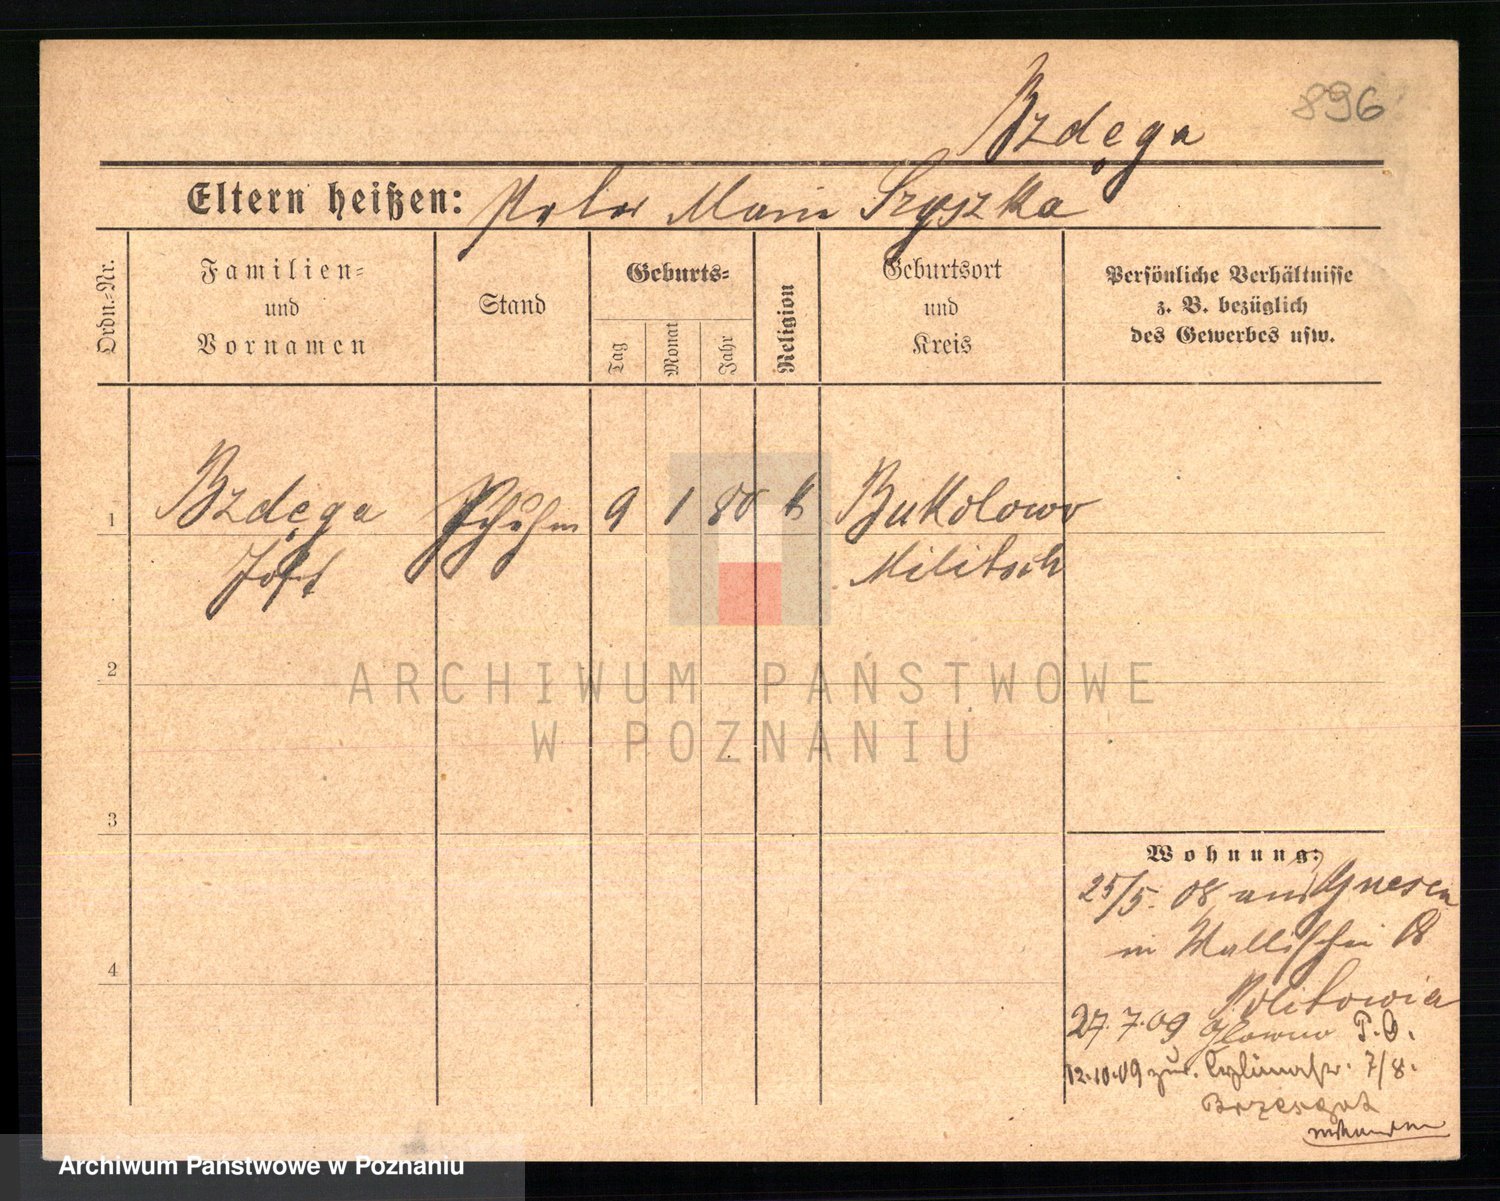 896
Bzdęga
Eltern heißen: Peter Marie Szyszka
Ordn.-Nr.
Familien-
und
Vornamen
Stand
Geburts-
Tag
Monat
Jahr
Religion
Geburtsort
und
Kreis
Persönliche Verhältnisse
z. B. bezüglich
des Gewerbes usw.
1 Bzdęga 9 1 80 k Bukolowo
Josef Militsch
2
ARCHIWUM PAŃSTWOWE
W POZNANIU
3
Wohnung:
25/5. 08 aus Gnesen
in Wallischei
4
27.7.09 Glowno P.O.
12.10.09 zur. 7/8.
Archiwum Państwowe w Poznaniu